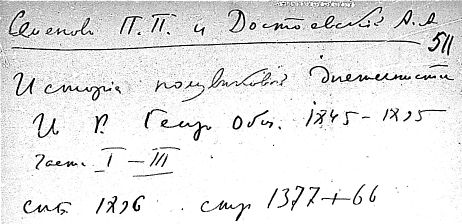 Семенов П. П. и Достоевский А. А
511
Исторія полувѣковой дѣятельности
И Р. Геогр Общ. 1845-1895
Части I-III
спб 1896. стр 1377+66